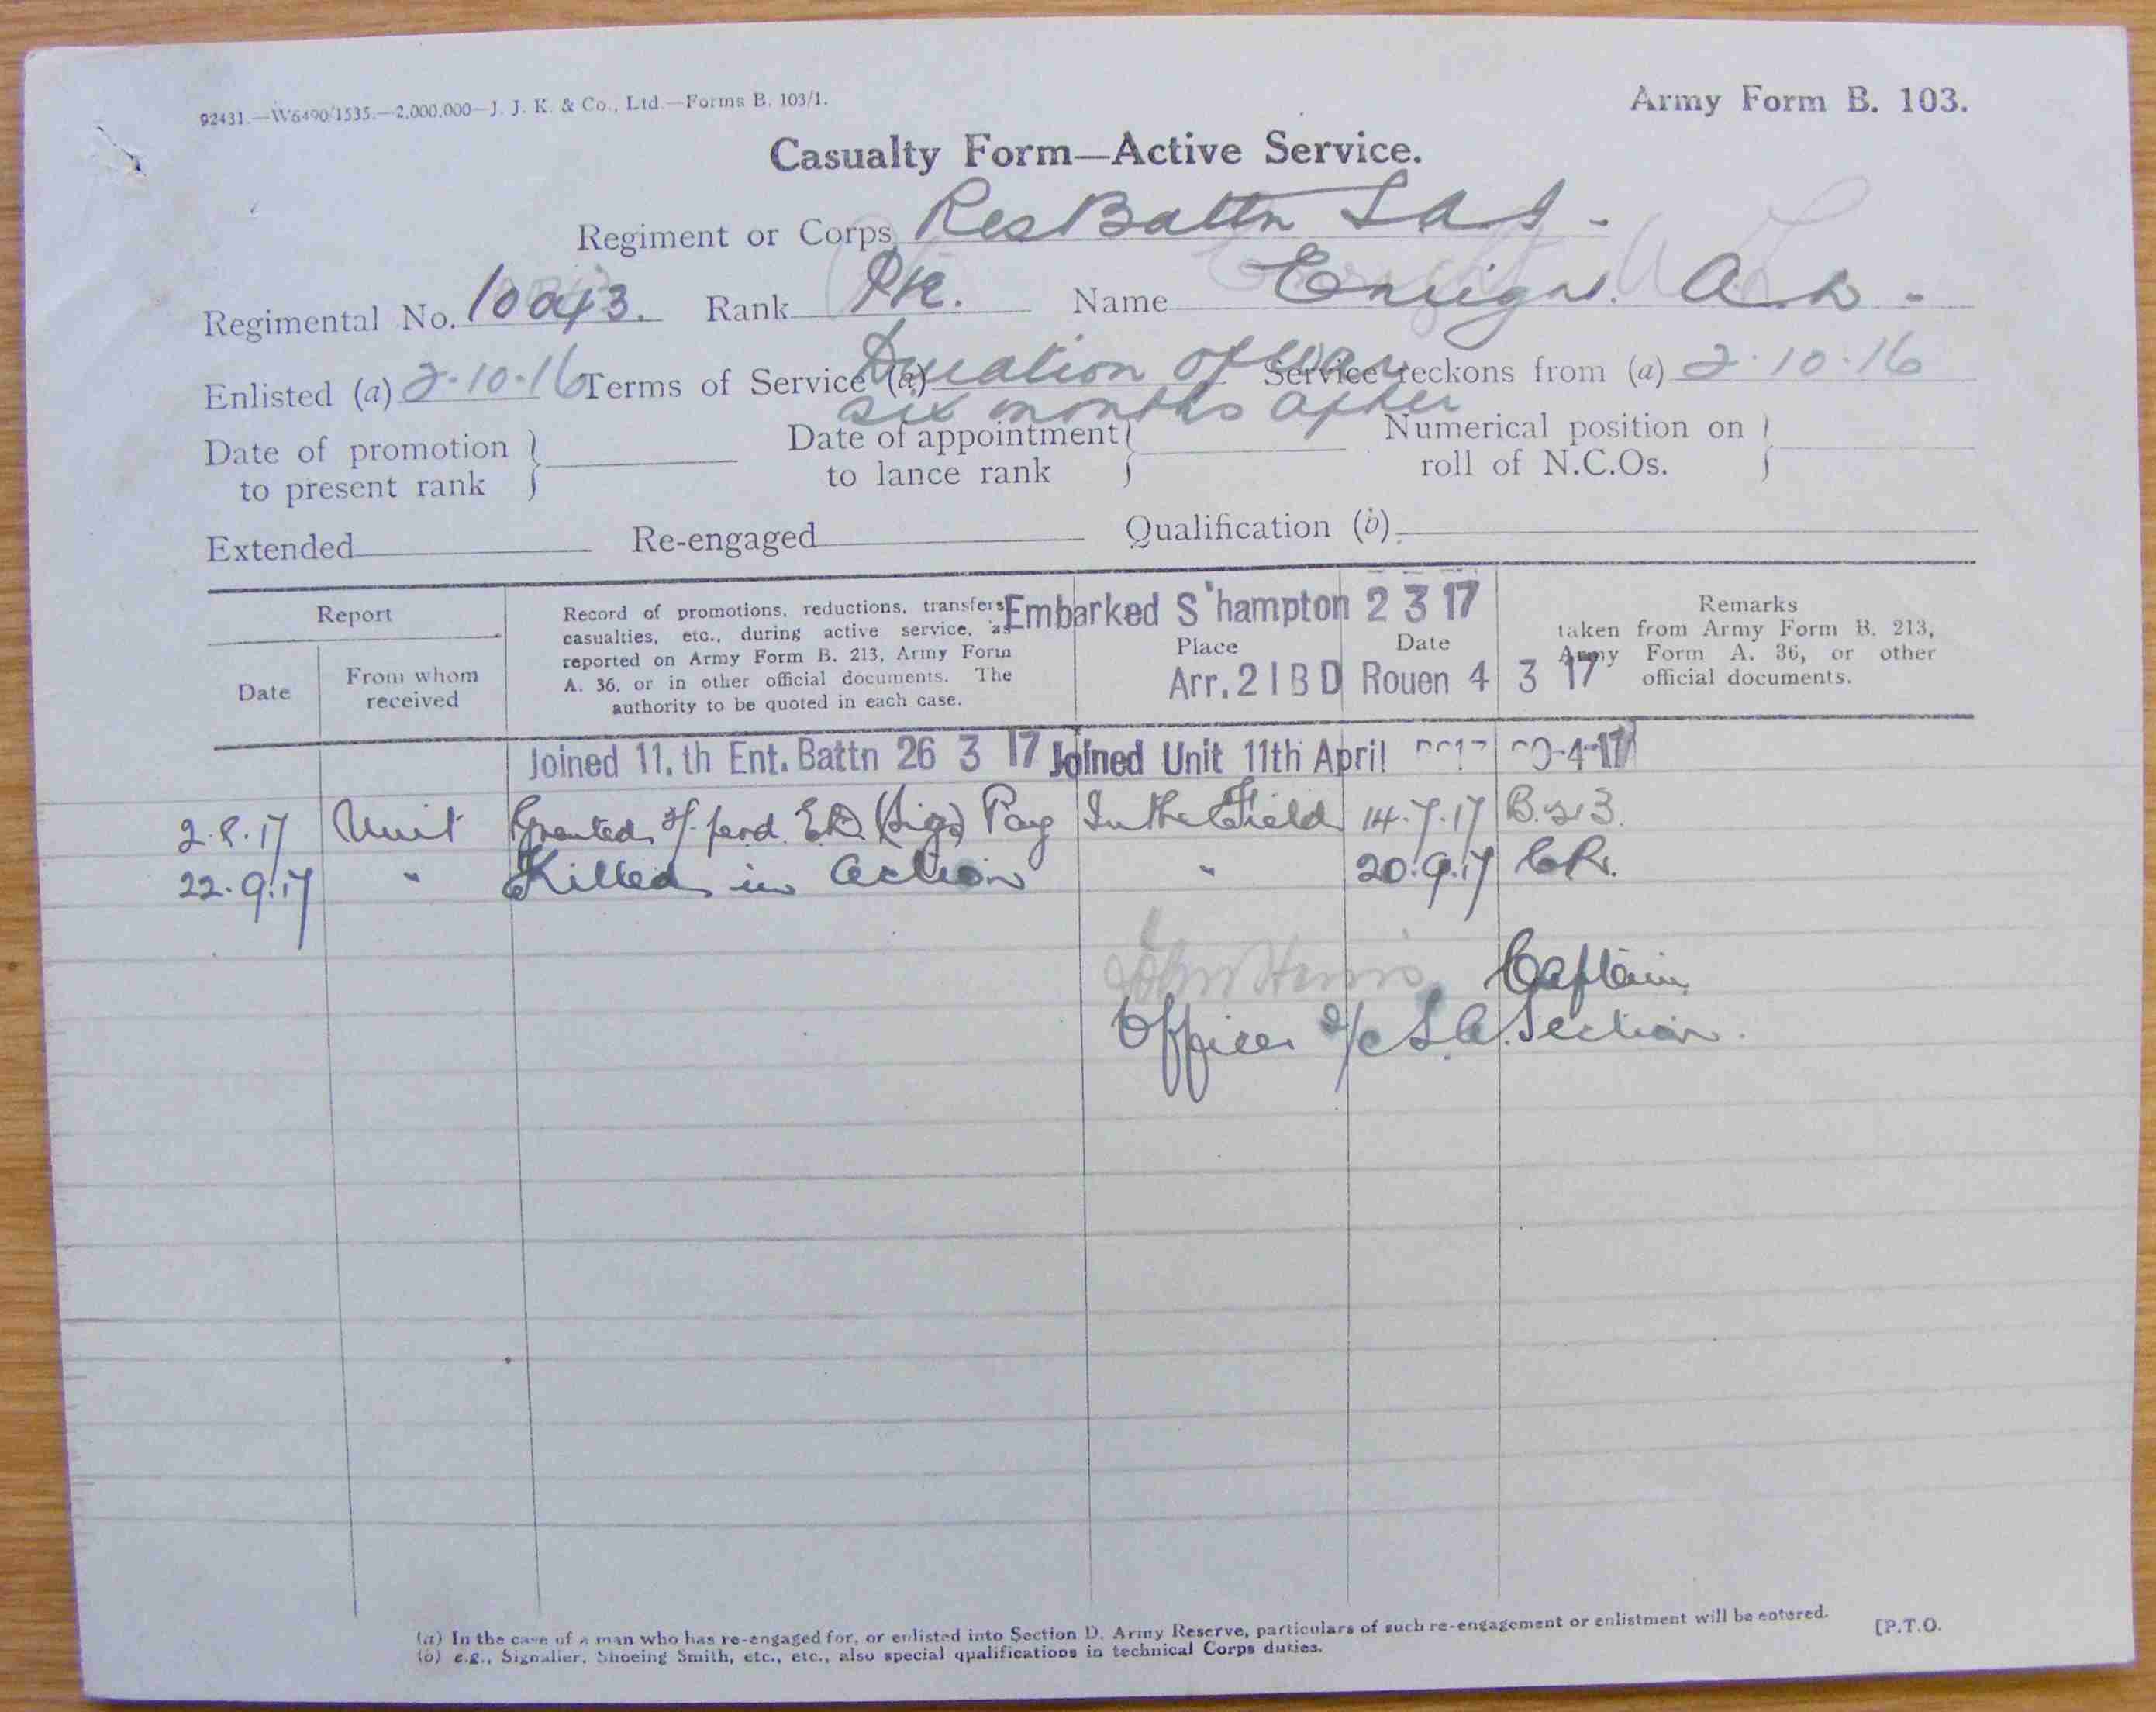 92431.—W6490/1535.—2,000,000—J. J. K. & Co., Ltd.—Forms B. 103/1.
Army Form B. 103.
Casualty Form—Active Service.
Regiment or Corps Res Battn S A I -
Regimental No. 10043. Rank Pte. Name Ensign. A. -
Enlisted (a) 2.10.16 Terms of Service (a) Duration of war Service reckons from (a) 2.10.16
six months after
Date of promotion to present rank
Date of appointment to lance rank
Numerical position on roll of N.C.Os.
Extended Re-engaged Qualification (b)
Report
Date
From whom received
Record of promotions, reductions, transfers, casualties, etc., during active service, as reported on Army Form B. 213, Army Form A. 36, or in other official documents. The authority to be quoted in each case.
Embarked S'hampton 2 3 17
Place
Date
Arr. 2 I B D Rouen 4 3 17
Remarks
taken from Army Form B. 213, Army Form A. 36, or other official documents.
Joined 11.th Ent. Battn 26 3 17 Joined Unit 11th April
2.8.17 Unit Granted Pay In the Field 14.7.17 B.213.
22.9.17 " Killed in action " 20.9.17 CR.
Captain
Officer i/c S.A. Section.
(a) In the case of a man who has re-engaged for, or enlisted into Section D. Army Reserve, particulars of such re-engagement or enlistment will be entered.
(b) e.g., Signaller, Shoeing Smith, etc., etc., also special qualifications in technical Corps duties.
[P.T.O.